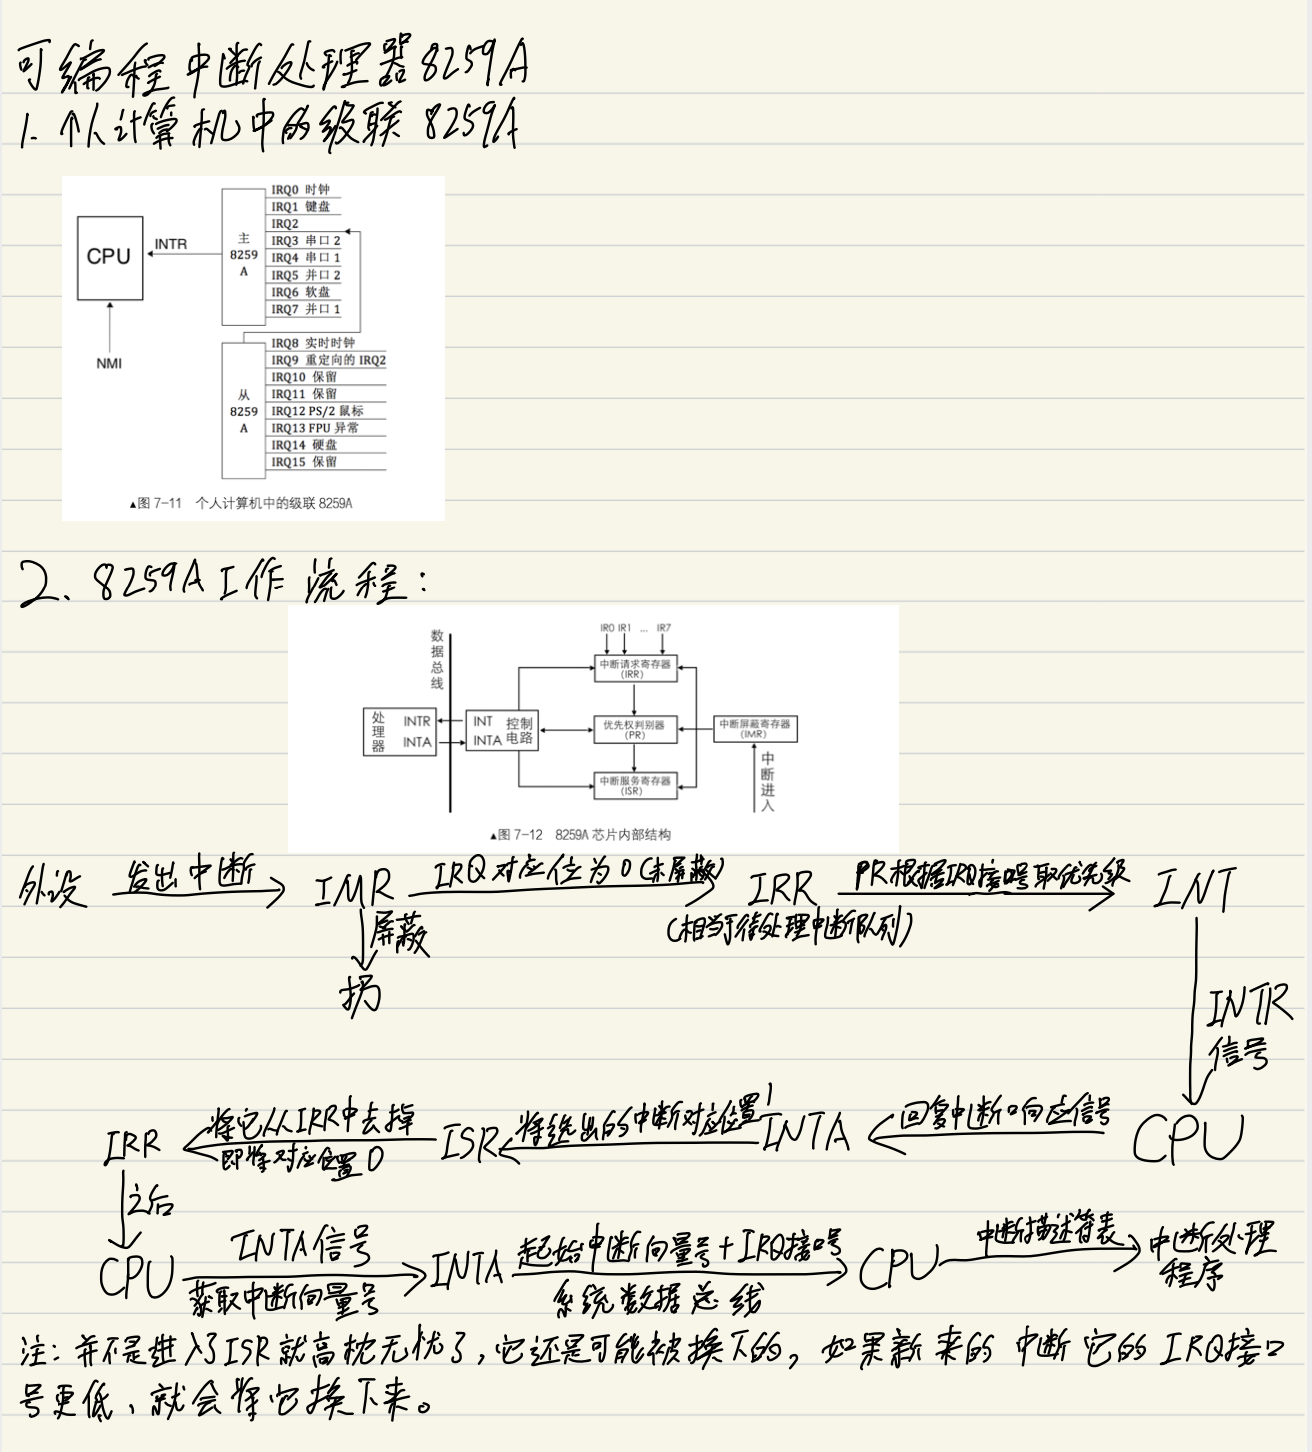 可编程中断处理器8259A
1. 个人计算机中的级联8259A
CPU
INTR
NMI
主
8259
A
IRQ0 时钟
IRQ1 键盘
IRQ2
IRQ3 串口2
IRQ4 串口1
IRQ5 并口2
IRQ6 软盘
IRQ7 并口1
从
8259
A
IRQ8 实时时钟
IRQ9 重定向的 IRQ2
IRQ10 保留
IRQ11 保留
IRQ12 PS/2 鼠标
IRQ13 FPU 异常
IRQ14 硬盘
IRQ15 保留
▲图 7-11 个人计算机中的级联 8259A
2、8259A工作流程：
数据总线
IR0 IR1 ... IR7
中断请求寄存器
(IRR)
处理器
INTR
INTA
INT
INTA
控制
电路
优先权判别器
(PR)
中断屏蔽寄存器
(IMR)
中断服务寄存器
(ISR)
中断进入
▲图 7-12 8259A 芯片内部结构
外设 发出中断 IMR IRQ对应位为0(未屏蔽) IRR PR根据IRQ接口号取优先级 INT
屏蔽
(相当于待处理中断队列)
扔
INTR
信号
CPU 回复中断响应信号 INTA 将选出的中断对应位置1 ISR 将它从IRR中去掉 IRR
即将对应位置0
之后
CPU INTA信号 INTA 起始中断向量号+IRQ接口号 CPU 中断描述符表 中断处理
获取中断向量号 系统数据总线 程序
注：并不是进入了ISR就高枕无忧了，它还是可能被换下的，如果新来的中断它的IRQ接口
号更低，就会将它换下来。